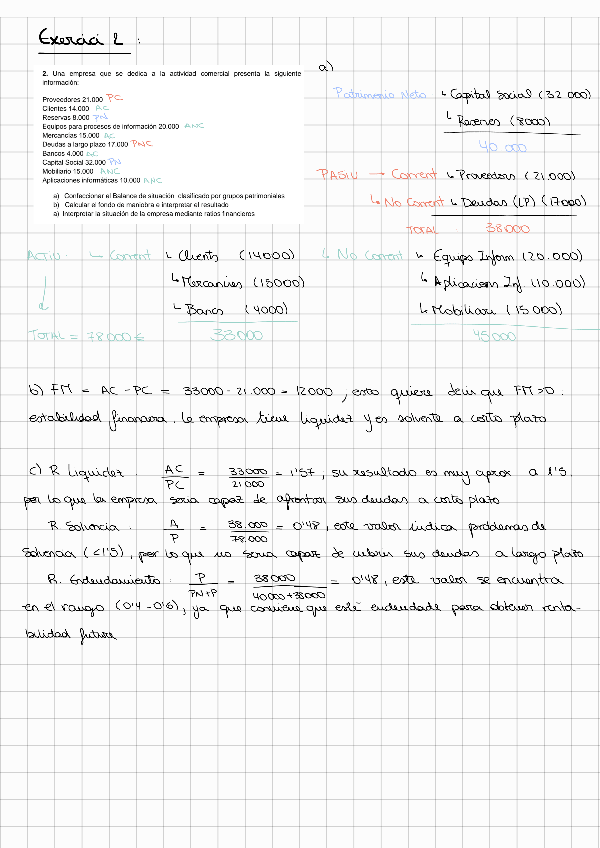 Exercici 2 :
2. Una empresa que se dedica a la actividad comercial presenta la siguiente
información:
Proveedores 21.000 PC
Clientes 14.000 AC
Reservas 8.000 PN
Equipos para procesos de información 20.000 ANC
Mercancías 15.000 AC
Deudas a largo plazo 17.000 PNC
Bancos 4.000 AC
Capital Social 32.000 PN
Mobiliario 15.000 ANC
Aplicaciones informáticas 10.000 ANC
a) Confeccionar el Balance de situación clasificado por grupos patrimoniales
b) Calcular el fondo de maniobra e interpretar el resultado
a) Interpretar la situación de la empresa mediante ratios financieros
a)
Patrimonio Neto ↳ Capital Social (32 000)
↳ Reserves (8000)
40 000
PASIU → Corrent ↳ Proveedors (21.000)
↳ No Corrent ↳ Deudas (LP) (17000)
TOTAL 38000
ACTIU ↳ Corrent ↳ Clients (14000) ↳ No Corrent ↳ Equips Inform (20.000)
↳ Mercancies (15000) ↳ Aplicacions Inf (10.000)
↳ Bancs (4000) ↳ Mobiliari (15 000)
TOTAL = 78 000 € 33000 45000
b) FM = AC - PC = 33000 - 21.000 = 12000, esto quiere decir que FM>0.
estabilidad financiera. La empresa tiene liquidez y es solvente a corto plazo
c) R Liquidez . AC/PC = 33000/21000 = 1'57, su resultado es muy aprox a 1'5.
por lo que la empresa seria capaz de afrontar sus deudas a corto plazo
R Solvencia . A/P = 38.000/78.000 = 0'48, este valor indica problemas de
Solvencia (<1'5), por lo que no seria capaz de cubrir sus deudas a largo plazo
R. Endeudamiento . P/PN+P = 38000/40000+38000 = 0'48, este valor se encuentra
en el rango (0'4 - 0'6), ya que conviene que esté endeudada para obtener renta-
bilidad futura